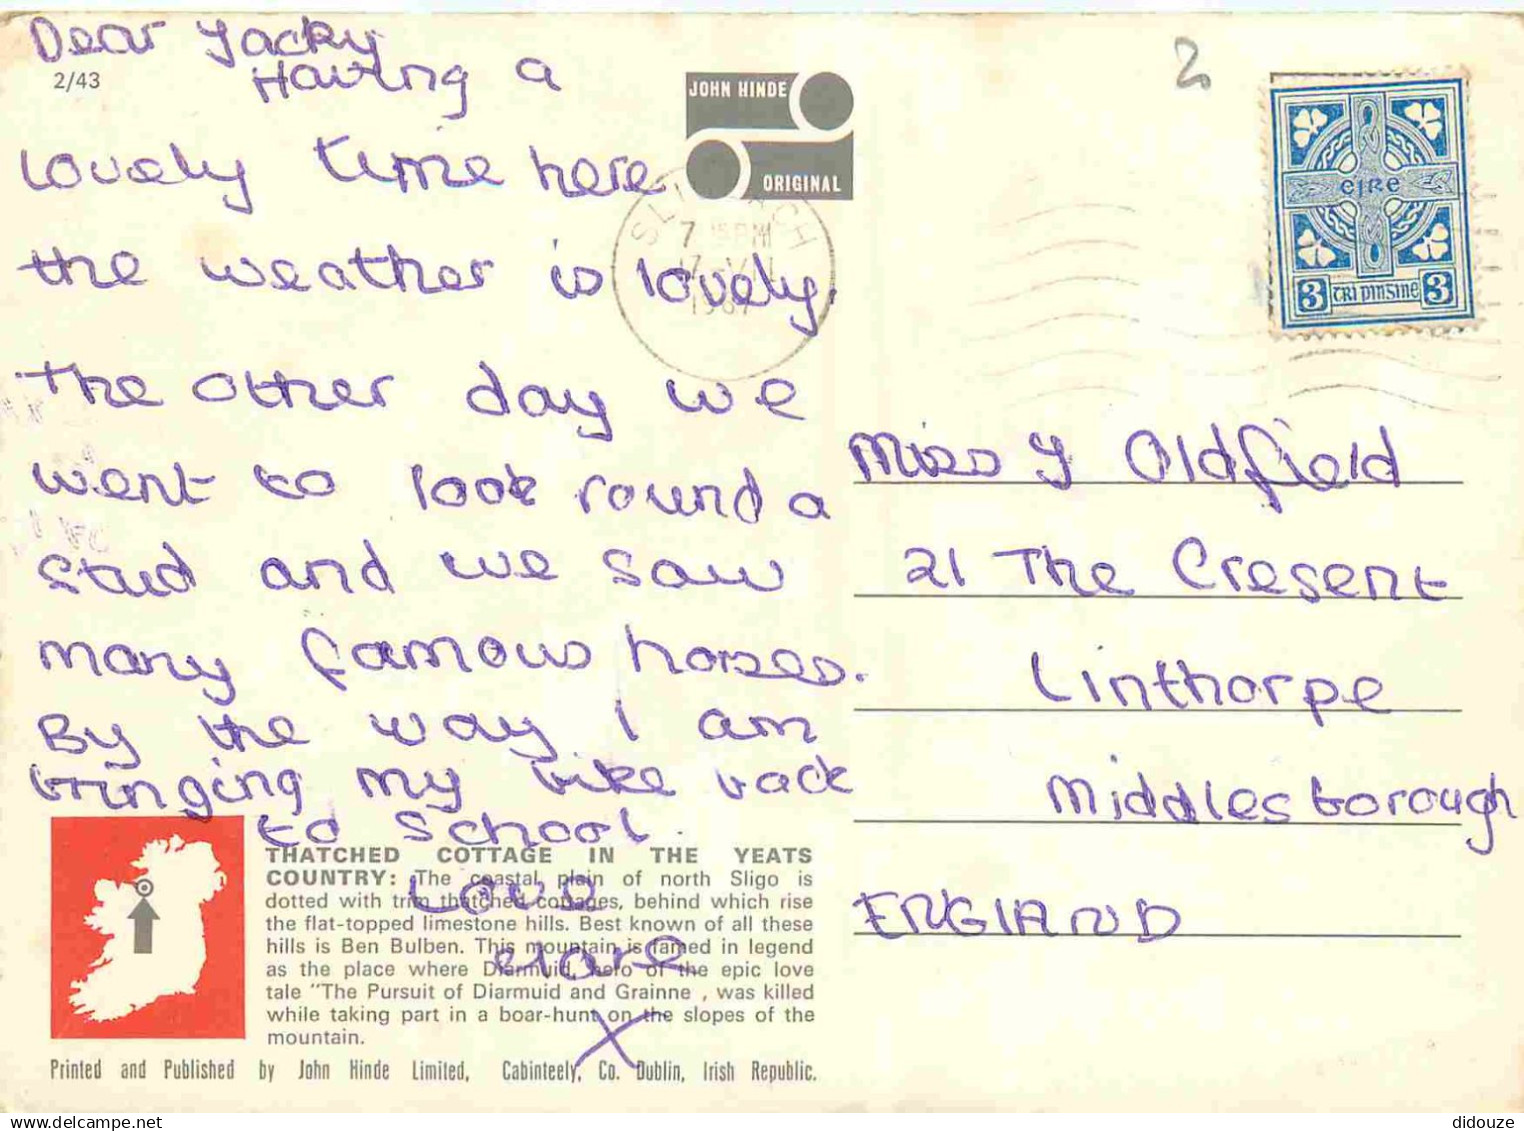 Dear Jacky
2/43
Having a
lovely time here.
the weather is lovely.
The other day we
went to look round a
stud and we saw
many famous horses.
By the way I am
bringing my bike back
to school.
Love
Clare
X
JOHN HINDE
ORIGINAL
7 15 PM
1967
2
EIRE
3 TRI PINSINE 3
Miss J Oldfield
21 The Cresent
Linthorpe
Middlesborough
ENGLAND
THATCHED COTTAGE IN THE YEATS
COUNTRY: The coastal plain of north Sligo is
dotted with trim thatched cottages, behind which rise
the flat-topped limestone hills. Best known of all these
hills is Ben Bulben. This mountain is famed in legend
as the place where Diarmuid, hero of the epic love
tale "The Pursuit of Diarmuid and Grainne , was killed
while taking part in a boar-hunt on the slopes of the
mountain.
Printed and Published by John Hinde Limited, Cabinteely, Co. Dublin, Irish Republic.
didouze